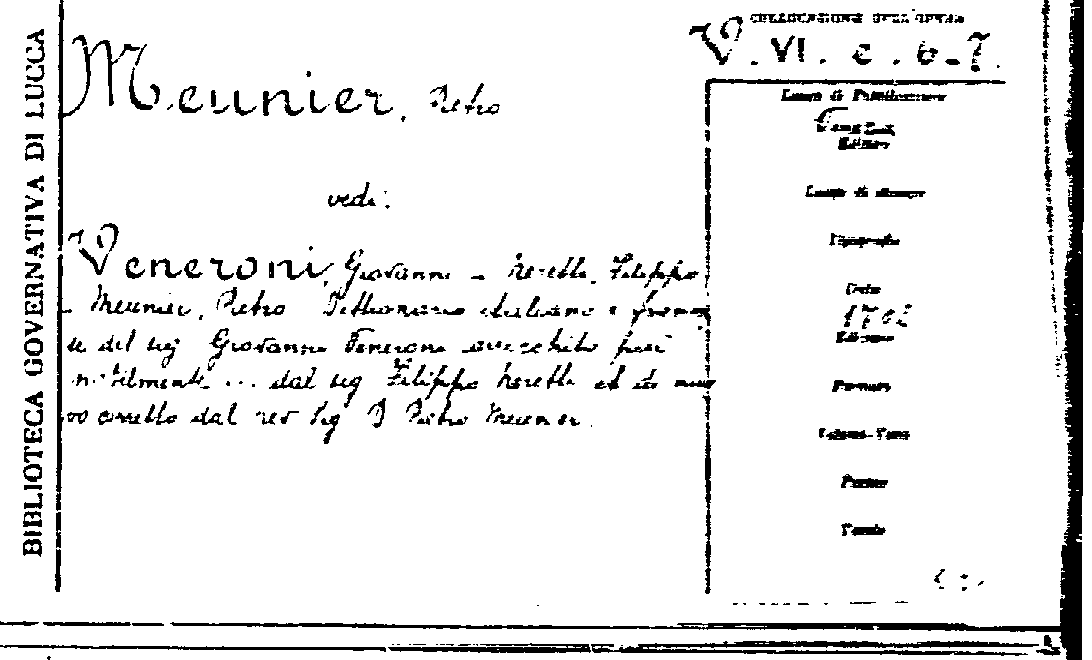 BIBLIOTECA GOVERNATIVA DI LUCCA
COLLOCAZIONE DELL'OPERA
V. VI. c. 6-7.
Meunier, Pietro
vedi:
Veneroni, Giovanni - Neretti, Filippo
- Meunier, Pietro Dittionario italiano e france
se del sig Giovanni Veneroni arricchito
... dal sig Filippo Neretti et di nuo
vo corretto dal rev sig D Pietro Meunier.
Luogo di Pubblicazione
Venezia
Editore
Luogo di stampa
Tipografia
Data
Edizione
Formato
Volumi-Tomi